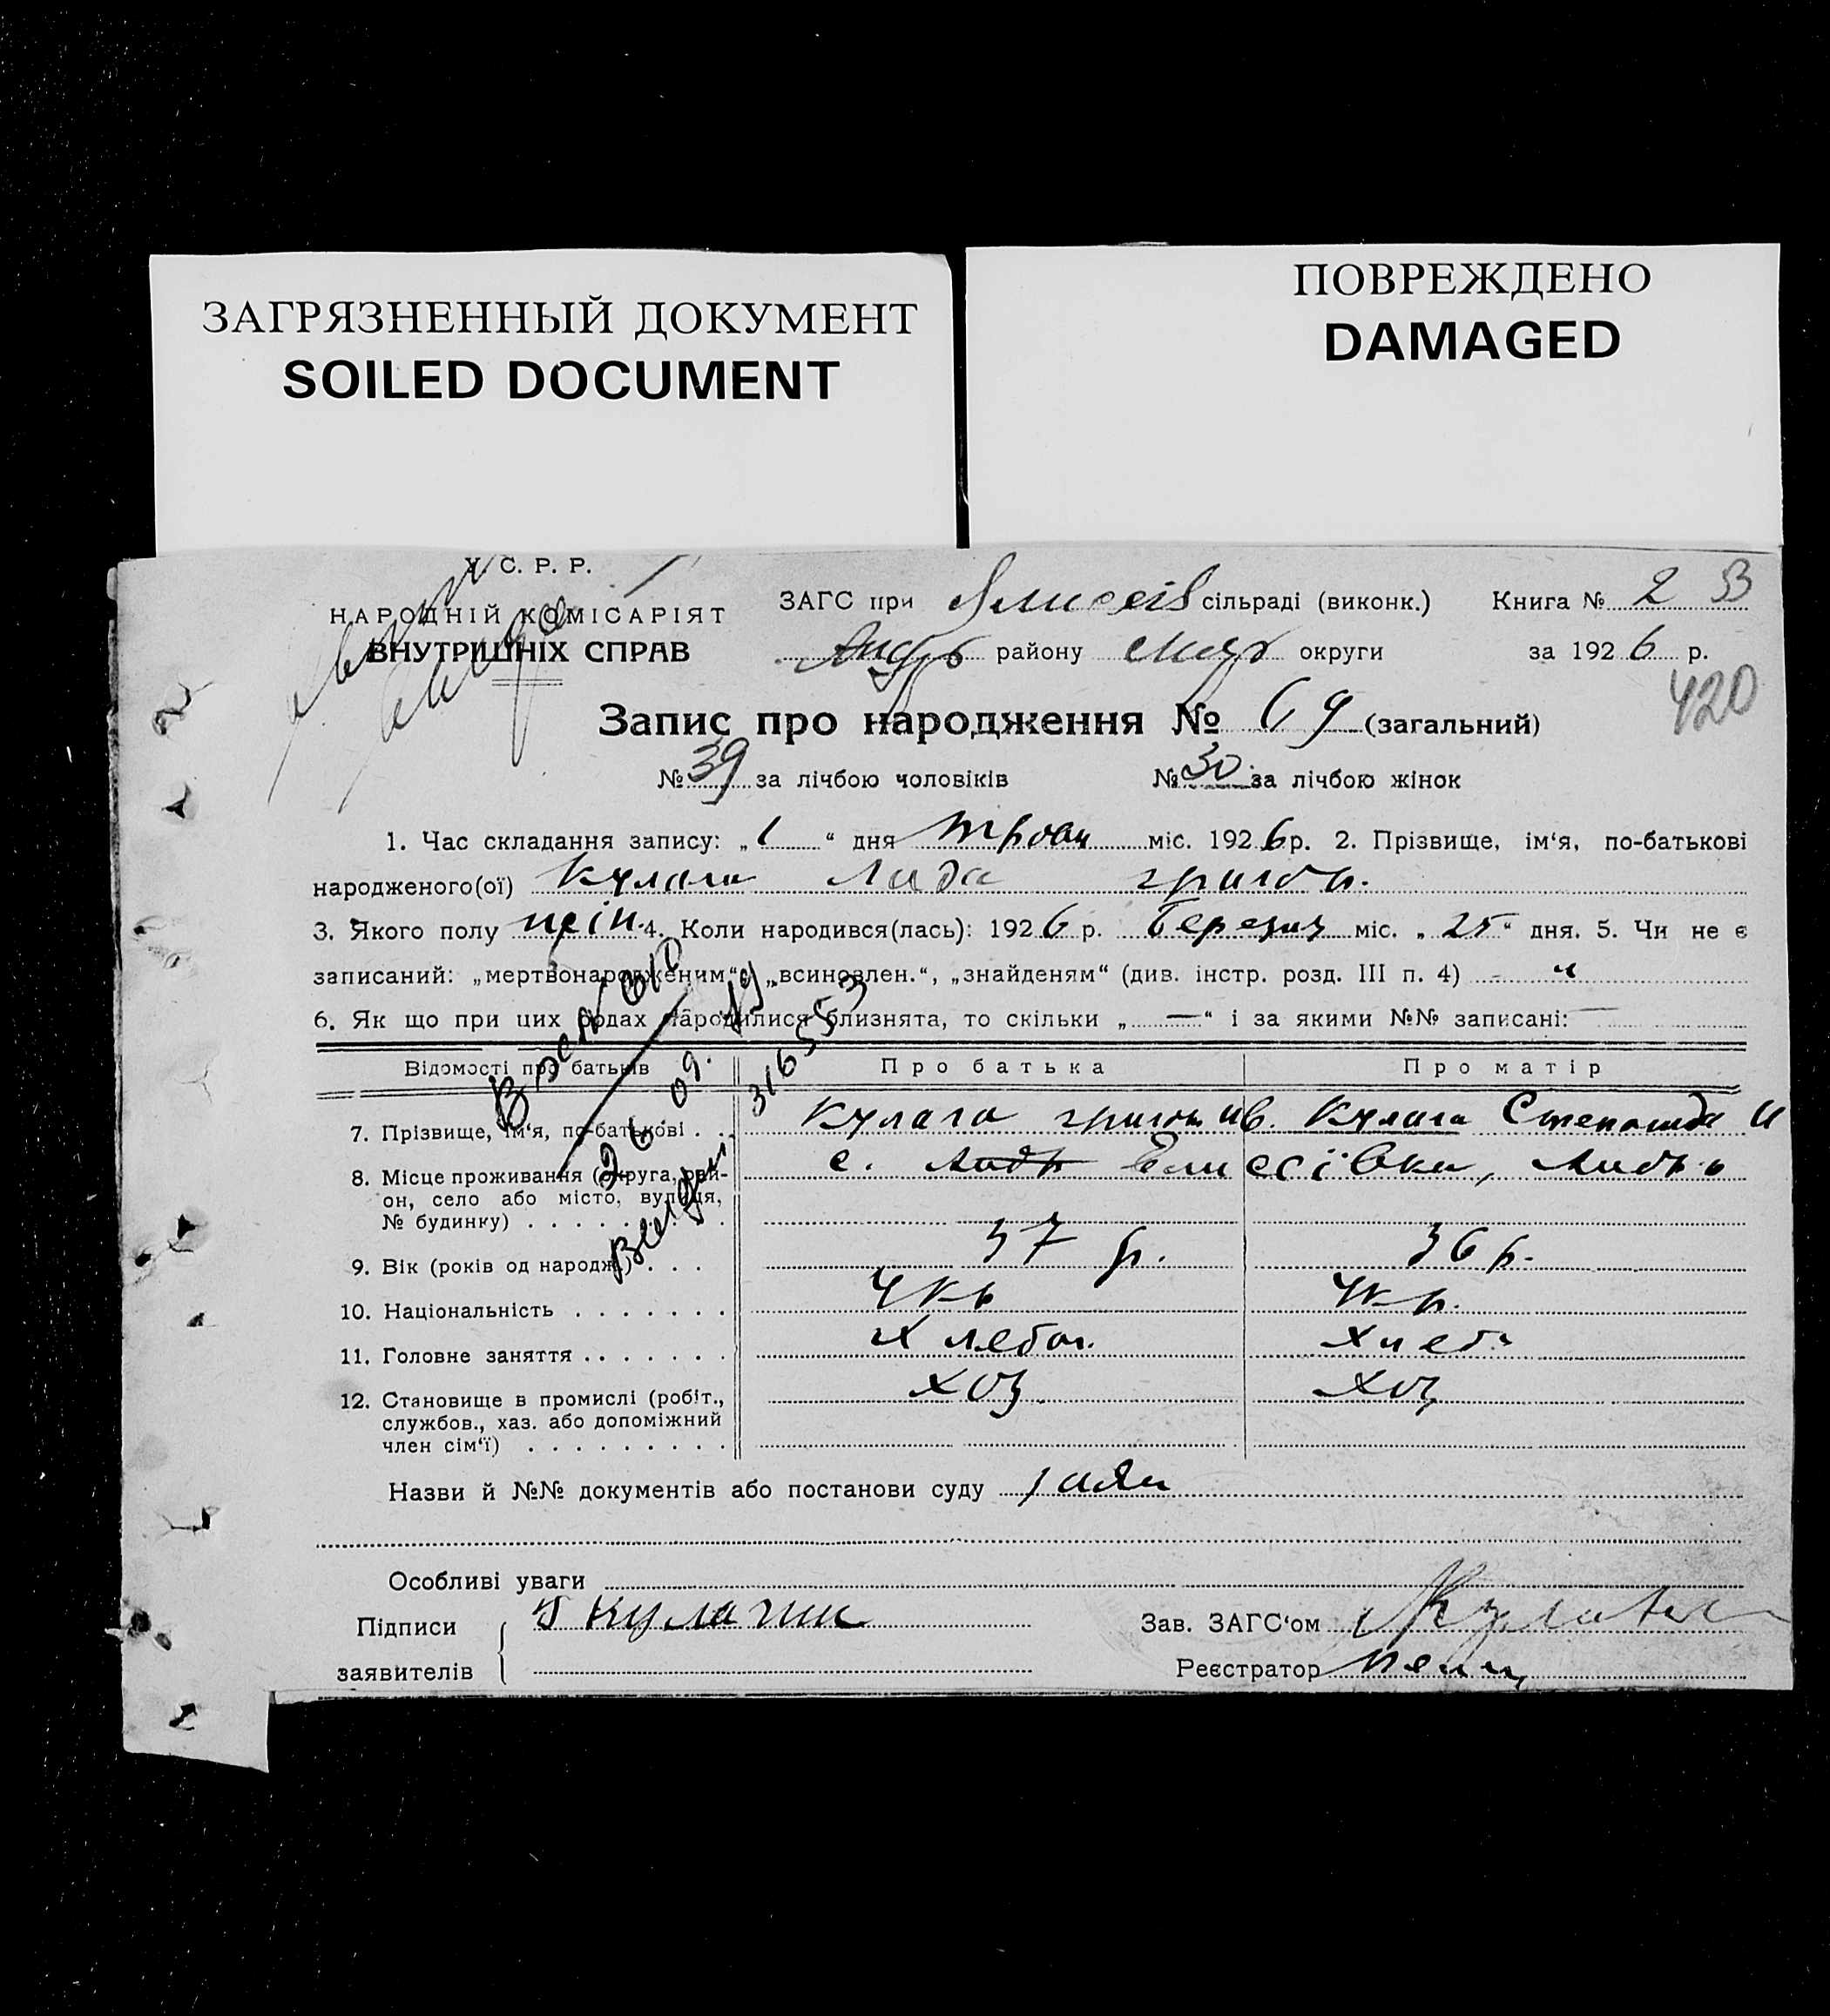 ЗАГРЯЗНЕННЫЙ ДОКУМЕНТ
SOILED DOCUMENT
ПОВРЕЖДЕНО
DAMAGED
У. С. Р. Р.
НАРОДНІЙ КОМІСАРІЯТ
ВНУТРІШНІХ СПРАВ
ЗАГС при сільраді (виконк.) Книга № 2 53
району округи за 1926 р.
420
Запис про народження № 69 (загальний)
№ 39 за лічбою чоловіків № 30 за лічбою жінок
1. Час складання запису: „1“ дня міс. 1926 р. 2. Прізвище, ім‘я, по-батькові
народженого(ої) Кулага Лида григор.
3. Якого полу жін. 4. Коли народився(лась): 1926 р. Березня міс. „25“ дня. 5. Чи не є
записаний: „мертвонародженим“, „всиновлен.“, „знайденям“ (див. інстр. розд. III п. 4)
6. Як що при цих родах народилися близнята, то скільки „—“ і за якими №№ записані: —
Відомості про батьків Про батька Про матір
7. Прізвище, ім‘я, по-батькові . . . Кулага григор. ив. Кулага Степанида И
8. Місце проживання (округа, рай-
он, село або місто, вулиця,
№ будинку) . . . . . . . . с. Андр Елисеївка, Андр.
9. Вік (років од народж.) . . . 37 р. 36 р.
10. Національність . . . . . . . Укр Укр.
11. Головне заняття . . . . . . . Хлебор. Хлеб.
12. Становище в промислі (робіт.,
службов., хаз. або допоміжний
член сім‘ї) . . . . . . . . . Хоз Хоз
316553
Назви й №№ документів або постанови суду
Особливі уваги
Підписи
заявителів Кулагин
Зав. ЗАГС‘ом
Реєстратор